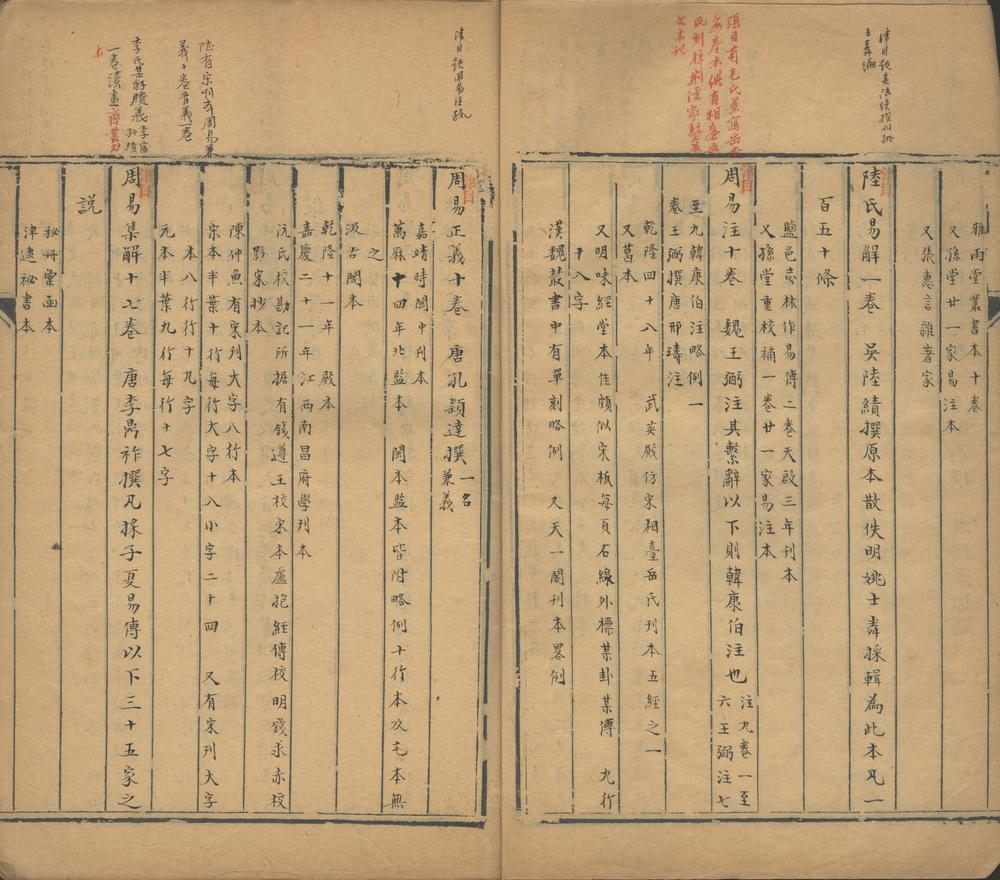 雅雨堂叢書本十卷
又孫堂廿一家易注本
又張惠言雜著家
陸氏易解一卷 吳陸績撰原本散佚明姚士粦採輯為此本凡一
百五十條
鹽邑志林作易傳二卷天啟三年刊本
又孫堂重校補一卷廿一家易注本
周易注十卷 魏王弼注其繫辭以下則韓康伯注也 注九卷一至
六王弼注七
至九韓康伯注略例一
卷王弼撰唐邢璹注
乾隆四十八年 武英殿仿宋相臺岳氏刊本五經之一
又葛本
又明味經堂本佳頗似宋板每頁右線外標某卦某傳 九行
十八字
漢魏叢書中有單刻略例 又天一閣刊本畧例
周易正義十卷 唐孔穎達撰 一名
兼義
嘉靖時閩中刊本
萬厤十四年北監本 閩本監本皆附略例十行本及毛本無
之
汲古閣本
乾隆十一年 殿本
嘉慶二十一年江西南昌府學刊本
阮氏校勘記所据有錢遵王校宋本盧抱經傳校明錢求赤校
影宋抄本
陳仲魚有宋刊大字八行本
宋本半葉十行每行大字十八小字二十四 又有宋刊大字
本八行行十九字
元本半葉九行每行十七字
周易集解十七卷 唐李鼎祚撰凡採子夏易傳以下三十五家之
說
秘冊彙函本
津逮祕書本
陸有宋刊本周易兼
義十卷音義一卷
李氏集解賸義李富
孫校
一卷讀畫齋叢刀
本